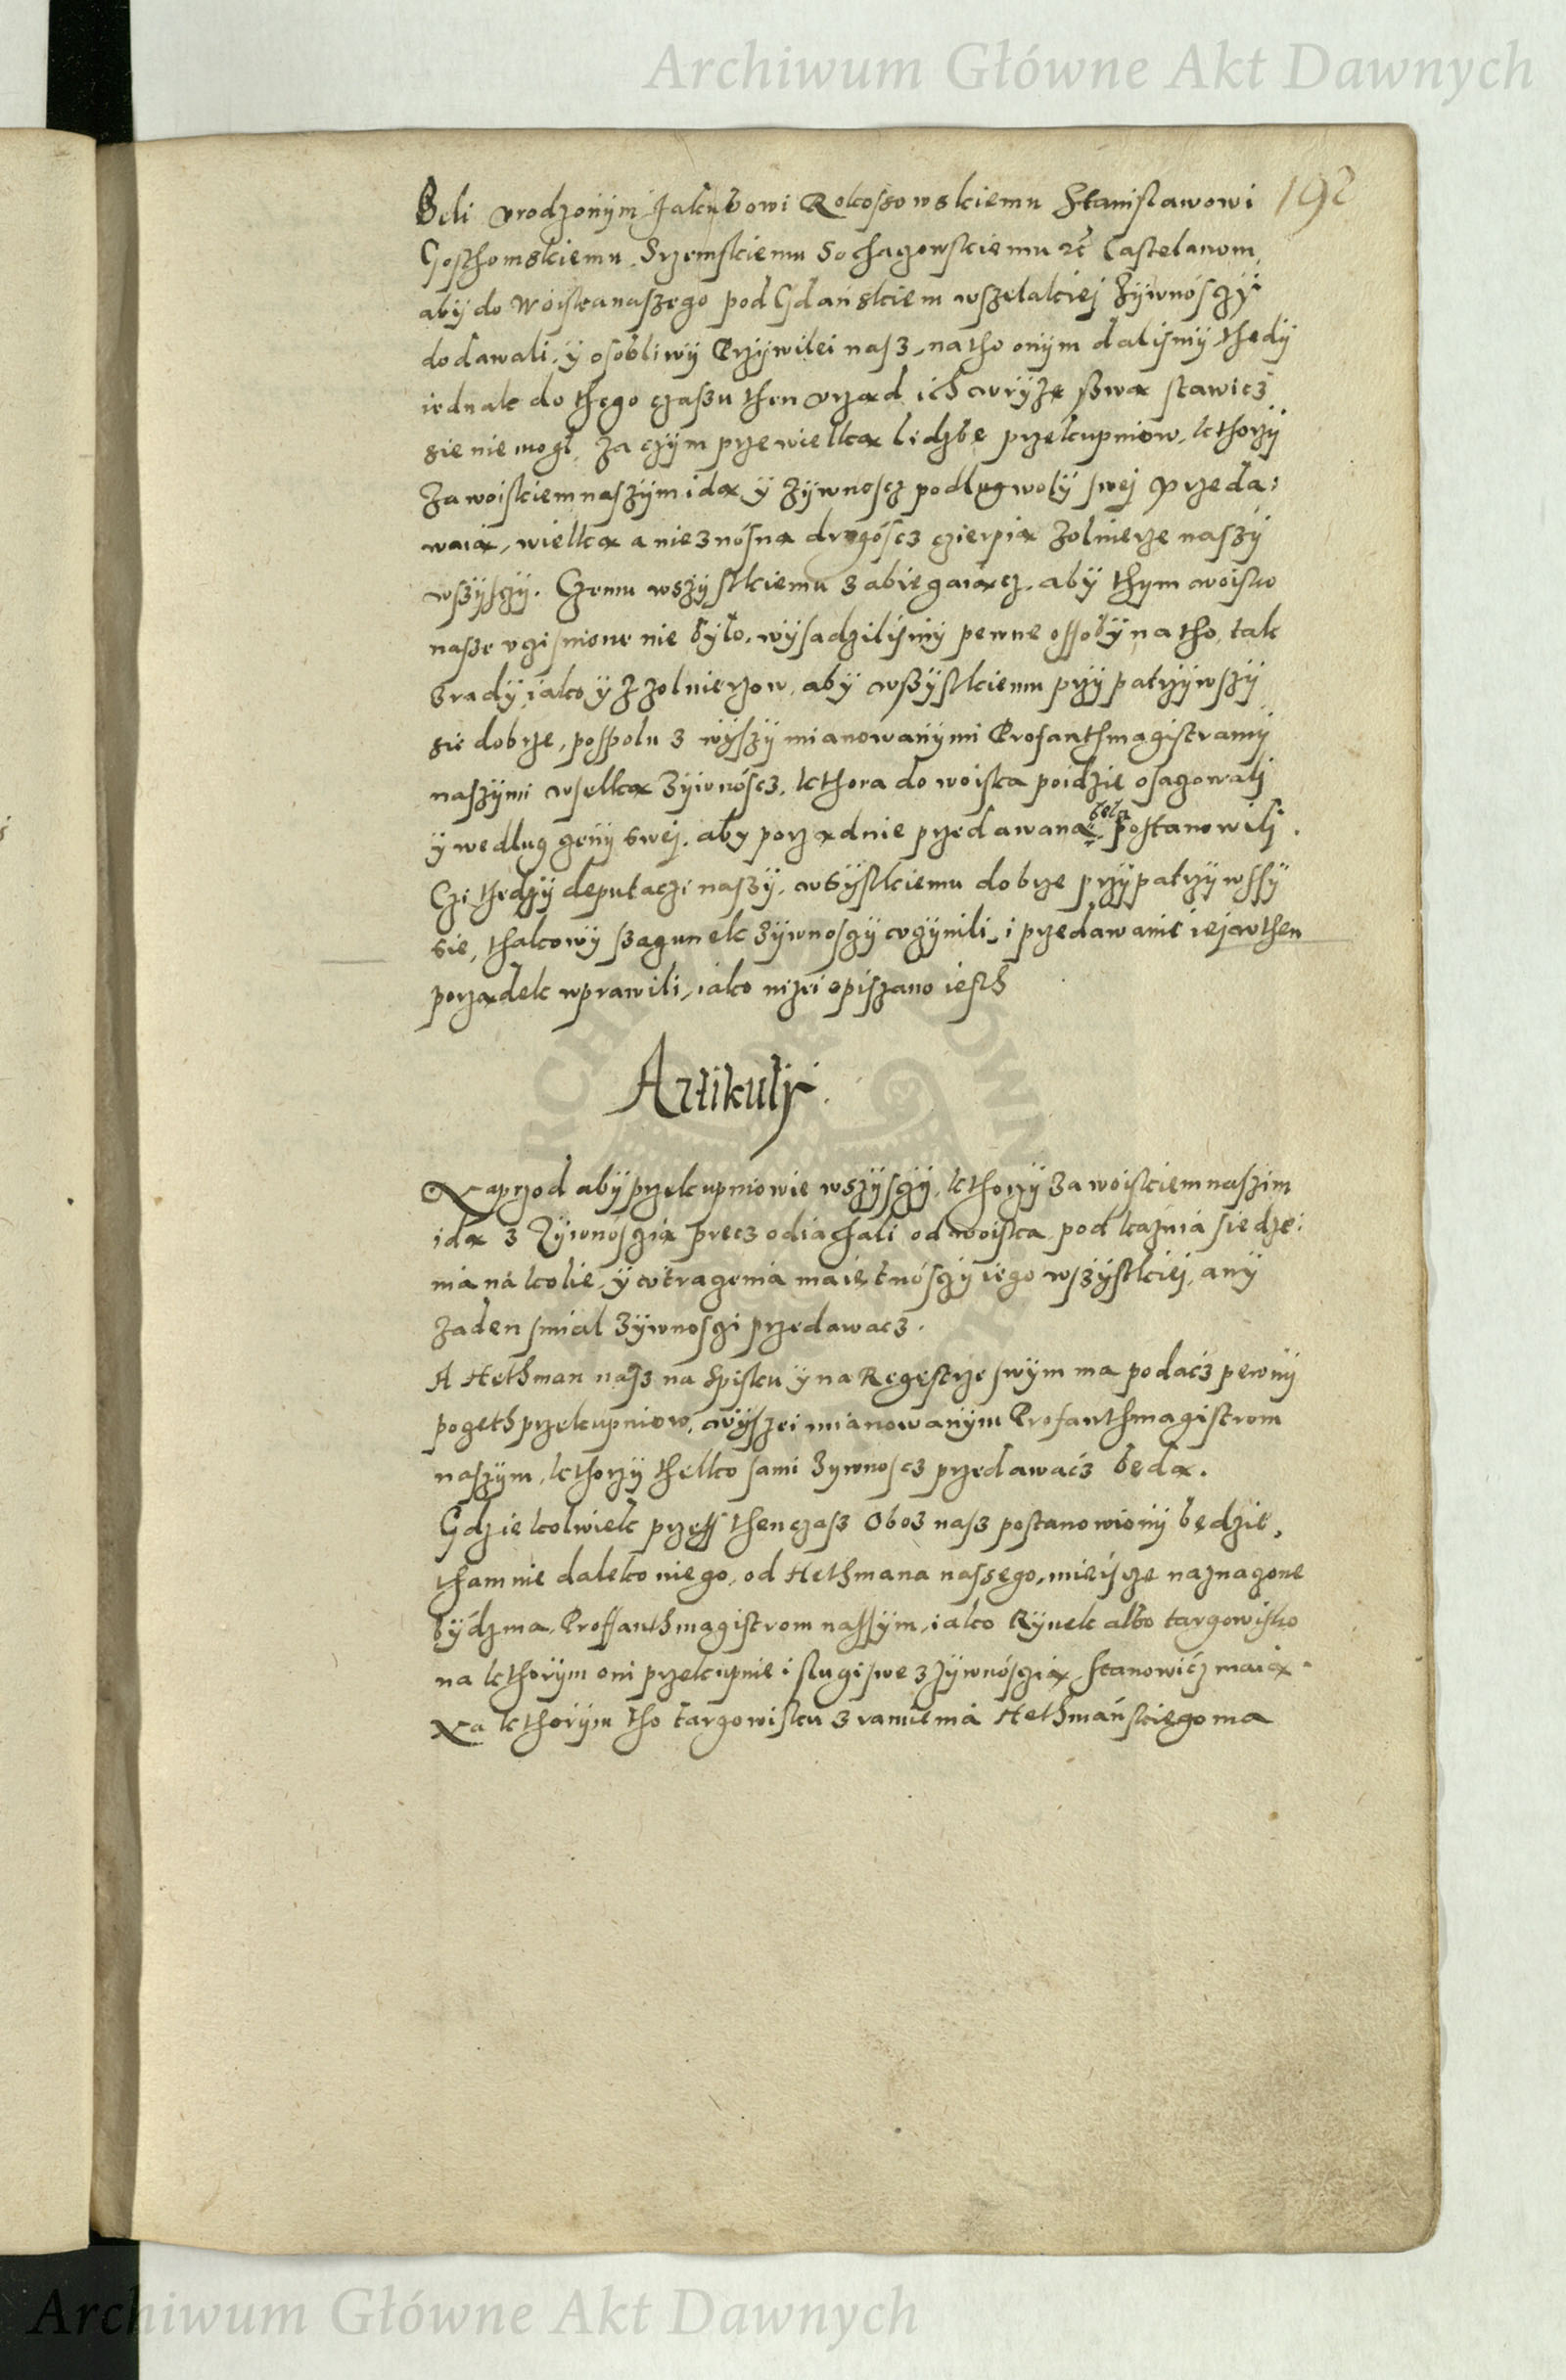 Archiwum Główne Akt Dawnych
192
Beli vrodzonÿm Jakubowi Rokossowskiemu Stanisławowi
Gosthomskiemu, Srzemskiemu Sochaczowskiemu etc Castelanom,
abÿ do woiska naszego pod Gdańskiem wszelakiej żÿwnósczÿi
dodawali, ÿ osobliwÿ Przÿwilei nasz, na tho onÿm dalismÿ, thedÿ
iednak do thego czaszu then vrząd ich w rÿzę swą stawicz
sie nie mogł, za czÿm prze wielką lidzbę przekupniow, kthorzÿ
za woiskiem naszÿm idą, ÿ żÿwnoscz podług wolÿ swej przeda:
waią, wielką a nieznósną drogóscz czierpią żolnierze naszÿ
wszÿsczÿ. Czemu wszÿstkiemu zabiegaiącz, abÿ thym woisko
nasze vczisnione nie bÿło, wÿsadzilismÿ pewne ossobÿ na tho, tak
z radÿ, iako ÿ z żolnierzow, abÿ wszÿstkiemu przÿpatrzÿwszÿ
sie dobrze, pospolu z wÿszÿ mianowanÿmi Profanthmagistramÿ
naszÿmi wselką żÿwnóscz, kthora do woiska poidzie osaczowali
ÿ według cenÿ swej, aby porządnie przedawana beła postanowili.
Czi thedÿ deputaczi naszÿ, wszÿstkiemu dobrze przÿpatrzÿwssÿ
sie, thakowÿ szaczunek żÿwnosczÿ vczÿnili, i przedawanié iej w then
porządek wprawili, iako niżei opiszano iesth
Artikulÿ.
Naprzod abÿ przekupniowie wszÿsczÿ, kthorzÿ za woiskiem naszim
idą z żÿwnósczią precz odiachali od woiska pod kaźnią siedze:
nia ná kolie, ÿ vtraczenia maiętnósczÿ iego wszÿstkiej, anÿ
żaden smiał żÿwnosczi przedawacz.
A Hethman nasz na spisku ÿ na Regestrze swÿm ma podácz pewnÿ
poczeth przekupniow, wÿszei mianowanÿm Profanthmagistrom
naszÿm, kthorzÿ thelko sami żywnoscz przedawácz będą.
Gdziekolwiek przess then czasz Oboz nasz postanowionÿ będzié,
tham nie daleko niego, od Hethmana nassego, miéiscze naznaczone
bÿdz ma, Proffanthmagistrom nassÿm, iako Rÿnek albo targowisko
na kthorÿm oni przekupnie i sługi swe z żÿwnósczią stanowicz maią.
Na kthorÿm tho targowisku z ramienia Hethmáńskiego ma
Archiwum Główne Akt Dawnych